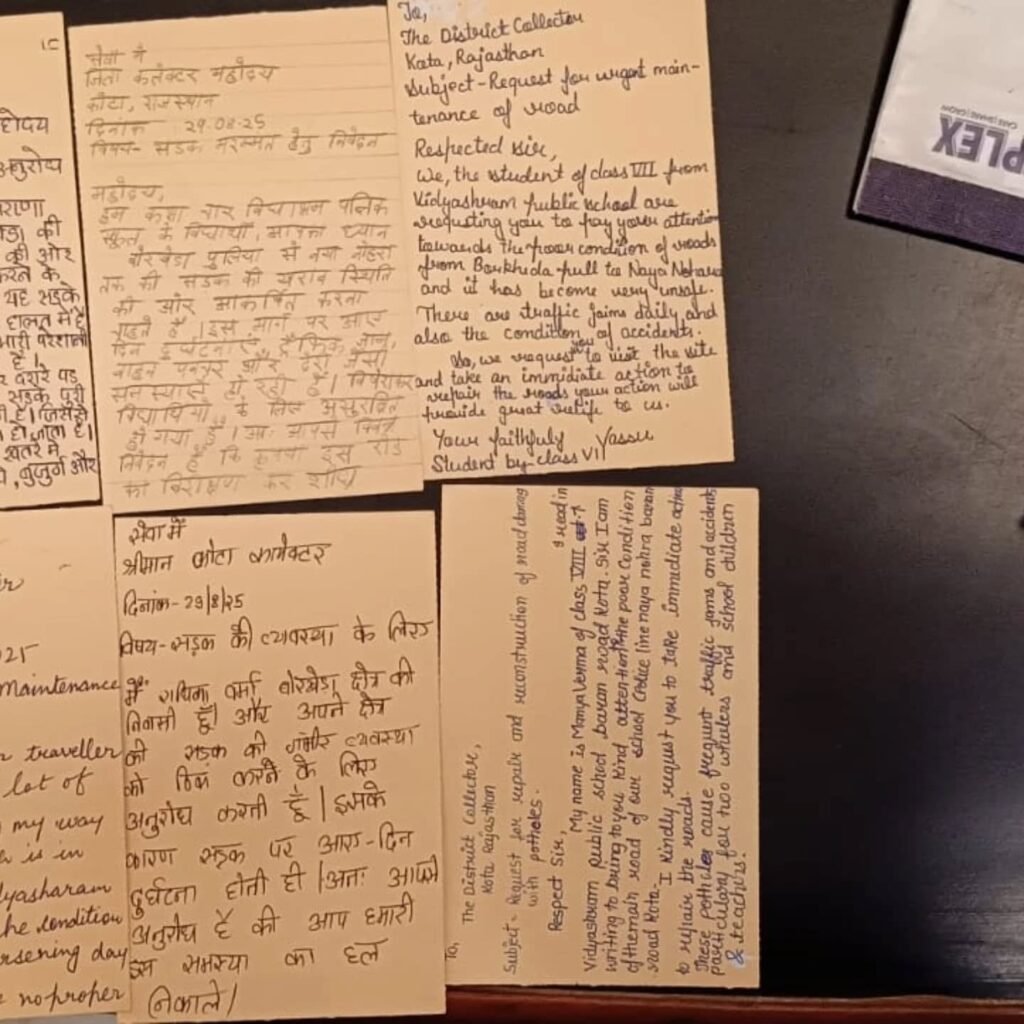 1C
होदय
अनुरोध
की
की ओर
करने के
यह सड़के
हालत में है
है।
सड़क पूरी
हो जाता है।
खतरे में
, बुजुर्ग और
सेवा में
जिला कलेक्टर महोदय
कोटा, राजस्थान
दिनांक 29.08.25
विषय- सड़क मरम्मत हेतु निवेदन
महोदय,
हम कक्षा चार विद्याश्रम पब्लिक
स्कूल के विद्यार्थी, आपका ध्यान
बोरखेडा पुलिया से नया नोहरा
तक की सड़क की खराब स्थिति
की ओर आकर्षित करना
चाहते हैं। इस मार्ग पर आए
दिन दुर्घटनाएं, ट्रैफिक जाम,
वाहन पंक्चर और देरी जैसी
समस्याएं हो रही हैं। विशेषकर
विद्यार्थियों के लिए असुरक्षित
हो गया है। अतः आपसे विनम्र
निवेदन है कि कृपया इस रोड
का निरीक्षण कर शीघ्र
To,
The District Collector
Kota, Rajasthan
Subject-Request for urgent main-
tenance of road
Respected sir,
We, the student of class VII from
Vidyashram public school are
requsting you to pay your attention
towards the poor condition of roads
from Borkhida pull to Naya Nohara
and it has become very unsafe.
There are traffic jaims daily and
also the condition of accidents.
So, we request you to visit the site
and take an immidiate action to
repair the roads your action will
provide great relife to us.
Your faithfuly Yassu
Student by-class VII
सेवा में
श्रीमान कोटा कलेक्टर
दिनांक- 29/8/25
विषय- सड़क की व्यवस्था के लिए
मैं राधिका वर्मा बोरखेड़ा क्षेत्र की
निवासी हूँ। और अपने क्षेत्र
की सड़क की गंभीर व्यवस्था
को ठिक करने के लिए
अनुरोध करती हूँ। इसके
कारण सड़क पर आए-दिन
दुर्घटना होती ही। अतः आपसे
अनुरोध है की आप हमारी
इस समस्या का हल
निकाले।
Maintenance
traveller
lot of
my way
is in
yasharam
he condition
rsening day
no proper
To,
The District Collector,
Kota Rajasthan
Subject- Request for repair and reconstruction of road during
with potholes.
Respect Sir,
My name is Manya Verma of class VIII I read in
Vidyashram Public school baran road Kota. Sir I am
writing to bring to you kind attention to the poor condition
of the main road of our school Police line naya nohra baran
road Kota.
I kindly request you to take immediate action
to repair the roads.
These potholes cause frequent traffic jams and accidents
particulary for two wheelers and school children
& teachers.
PLEX
CARE | SHARE | GROW